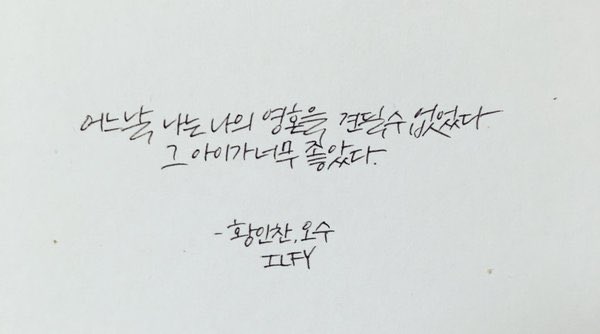 어느날, 나는 나의 영혼을 견딜수 없었다
그 아이가 너무 좋았다.
- 황인찬, 오수
ILFY